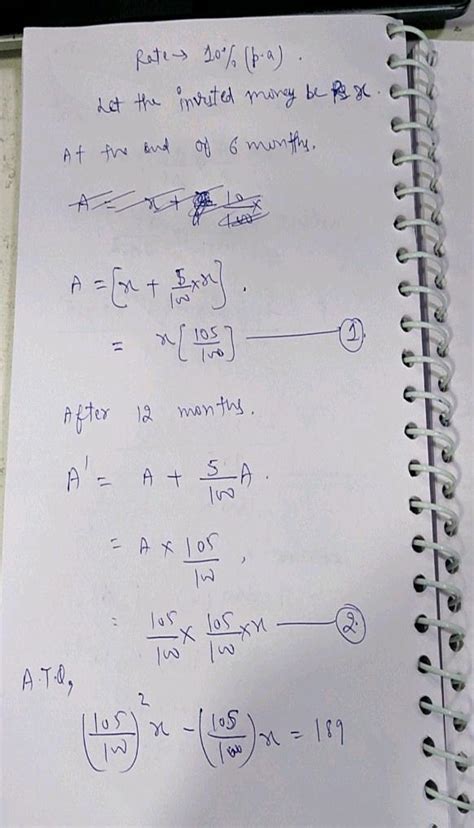 Rate → 10% (p.a).
Let the invested money be Rs x.
At the end of 6 months.
A = x + 10/100 x
A = [x + 5/100 × x].
= x [105/100] — 1.
After 12 months.
A' = A + 5/100 A.
= A × 105/100,
= 105/100 × 105/100 × x — 2.
A.T.Q,
(105/100)² x - (105/100) x = 189